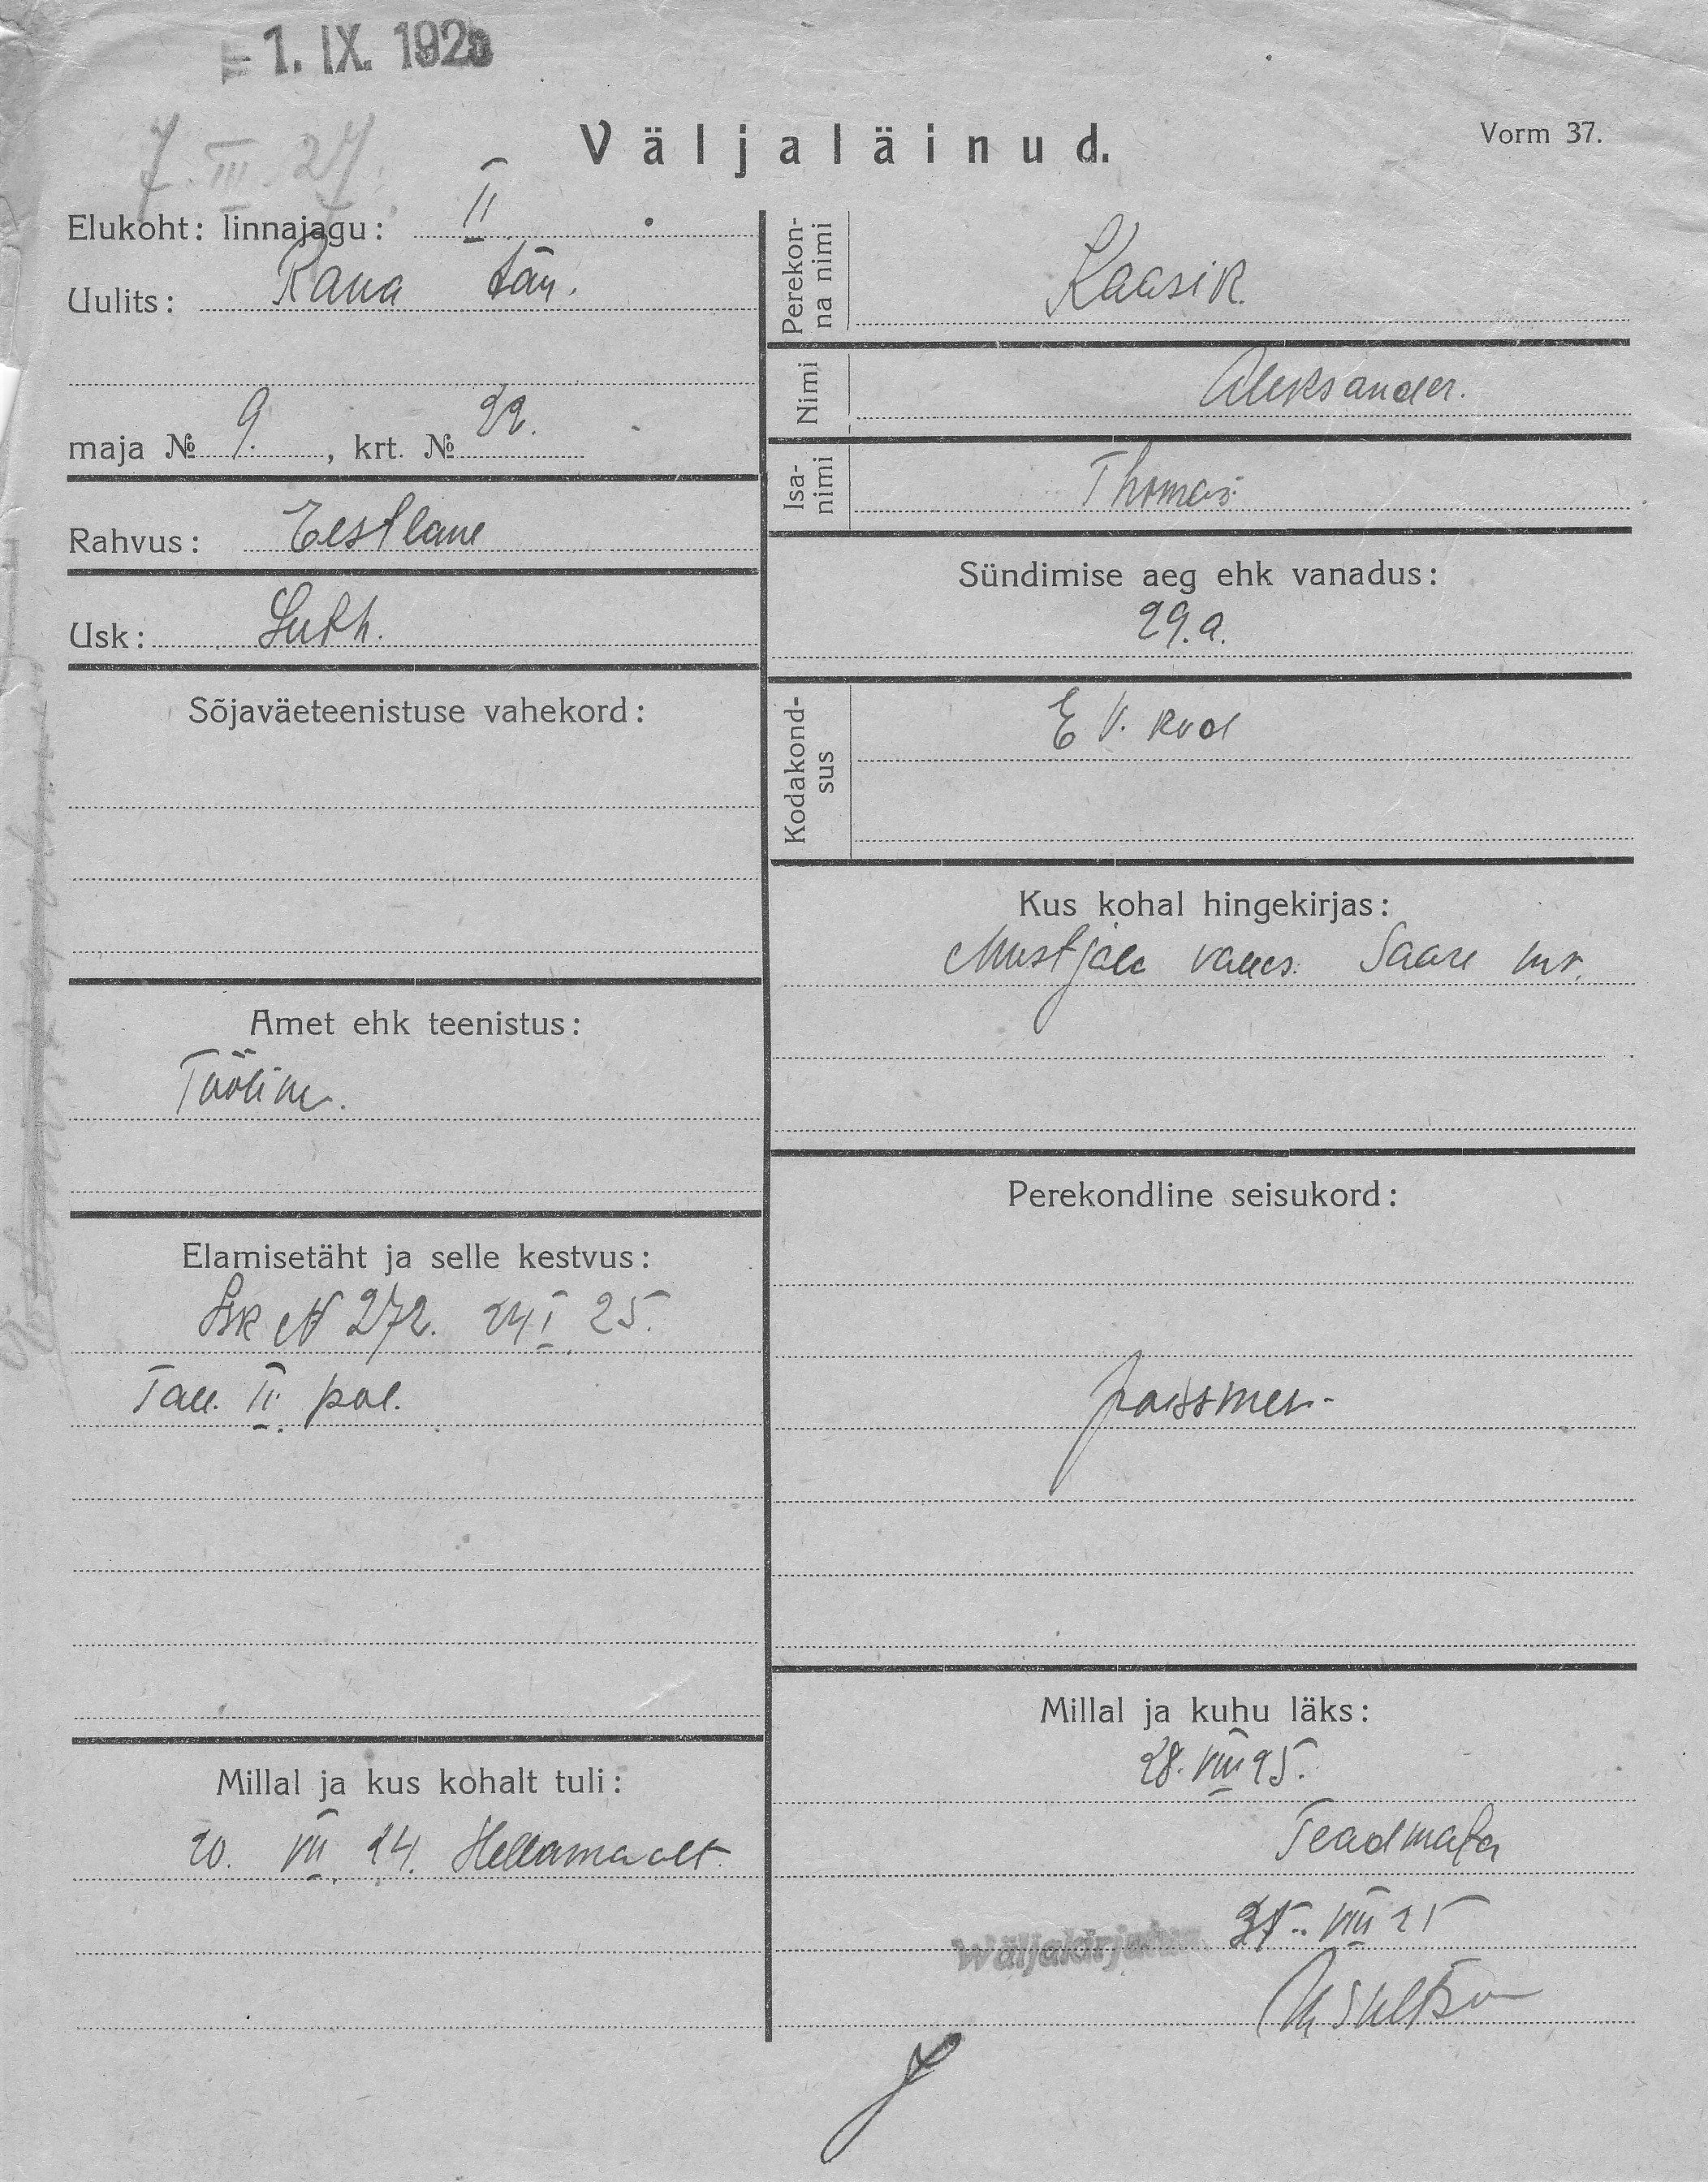 1. IX. 1925
7. III. 27.
Väljaläinud.
Vorm 37.
Elukoht: linnajagu: II
Uulits: Raua tän.
maja № 9. , krt. № 22.
Rahvus: Eestlane
Usk: Luth.
Sõjaväeteenistuse vahekord:
Amet ehk teenistus:
Tööline.
Elamisetäht ja selle kestvus:
Isk N 272. 24 I 25.
Tall. II. pol.
Millal ja kus kohalt tuli:
20. VII 24. Hellamaalt.
Perekon-
na nimi
Kaasik.
Nimi
Aleksander.
Isa-
nimi
Thomas.
Sündimise aeg ehk vanadus:
29. a.
Kodakond-
sus
E V. kod
Kus kohal hingekirjas:
Mustjala vallas. Saare mk.
Perekondline seisukord:
poissmes.
Millal ja kuhu läks:
28. VIII 25.
Teadmata
VIII 25
Wäljakirjutus